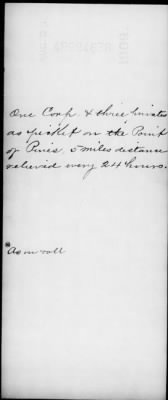 One Corp. & three privates
as picket on the Point
of Pines, 5 miles distance
relieved every 24 hours.
As on roll